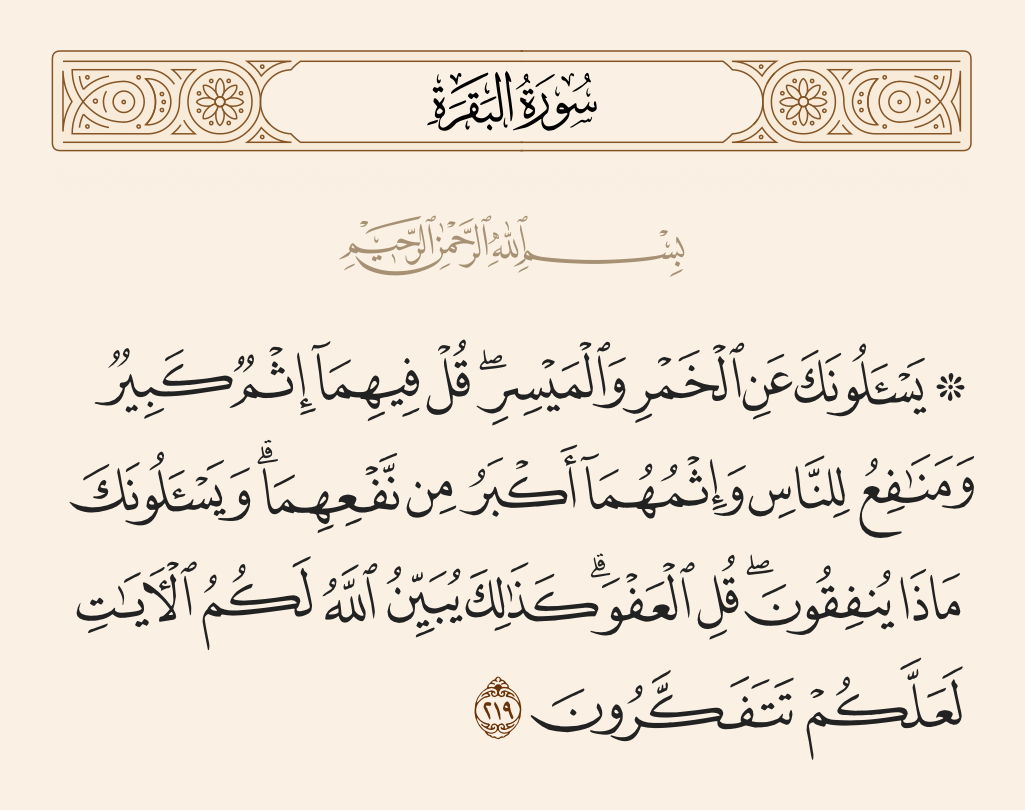 سُورَةُ البَقَرَةِ
بِسْمِ ٱللَّهِ ٱلرَّحْمَٰنِ ٱلرَّحِيمِ
۞ يَسْـَٔلُونَكَ عَنِ ٱلْخَمْرِ وَٱلْمَيْسِرِ ۖ قُلْ فِيهِمَآ إِثْمٌ كَبِيرٌ
وَمَنَـٰفِعُ لِلنَّاسِ وَإِثْمُهُمَآ أَكْبَرُ مِن نَّفْعِهِمَا ۗ وَيَسْـَٔلُونَكَ
مَاذَا يُنفِقُونَ ۖ قُلِ ٱلْعَفْوَ ۗ كَذَٰلِكَ يُبَيِّنُ ٱللَّهُ لَكُمُ ٱلْـَٔايَـٰتِ
لَعَلَّكُمْ تَتَفَكَّرُونَ ٢١٩